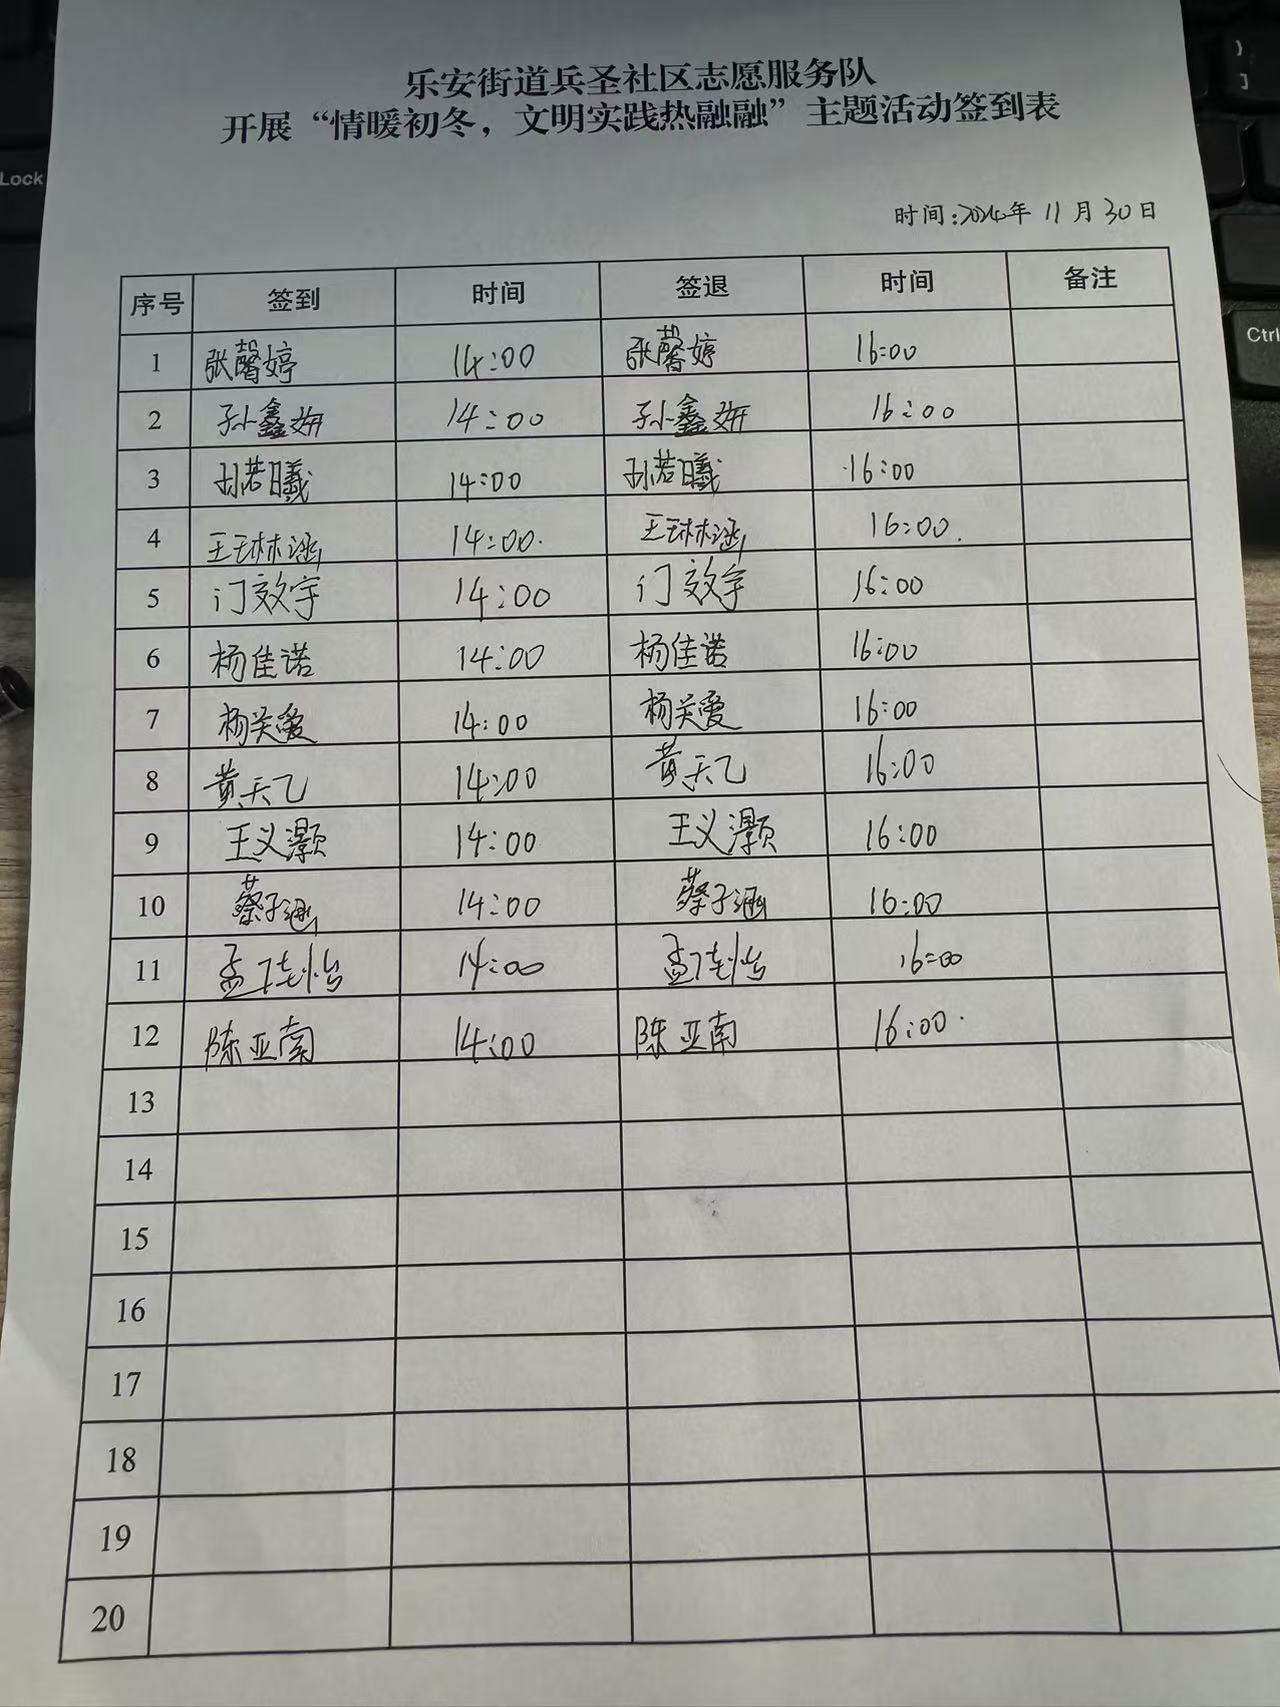 乐安街道兵圣社区志愿服务队
开展“情暖初冬，文明实践热融融”主题活动签到表
时间:2024年 11月30日
序号 签到 时间 签退 时间 备注
1 张馨婷 14:00 张馨婷 16:00
2 孙鑫妍 14:00 孙鑫妍 16:00
3 孙若曦 14:00 孙若曦 16:00
4 王琳涵 14:00 王琳涵 16:00
5 门效宇 14:00 门效宇 16:00
6 杨佳诺 14:00 杨佳诺 16:00
7 杨关爱 14:00 杨关爱 16:00
8 黄天乙 14:00 黄天乙 16:00
9 王义灏 14:00 王义灏 16:00
10 蔡子涵 14:00 蔡子涵 16:00
11 孟佳怡 14:00 孟佳怡 16:00
12 陈亚南 14:00 陈亚南 16:00
13
14
15
16
17
18
19
20
Lock
Ctrl
}
]